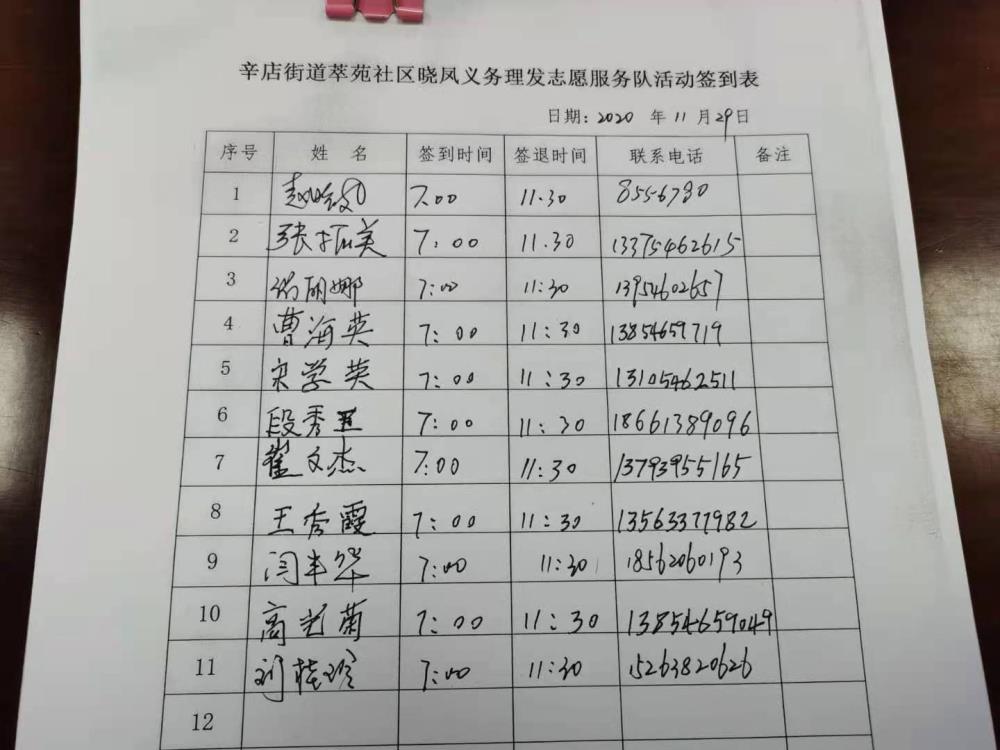 辛店街道萃苑社区晓凤义务理发志愿服务队活动签到表
日期: 2020 年 11 月 29 日
序号 姓 名 签到时间 签退时间 联系电话 备注
1 赵 7:00 11:30 8556780
2 张振美 7:00 11:30 13375462615
3 丽娜 7:00 11:30 13954602657
4 曹海英 7:00 11:30 13854659719
5 宋学英 7:00 11:30 13105462511
6 段秀玉 7:00 11:30 18661389096
7 崔文杰 7:00 11:30 13793955165
8 王秀霞 7:00 11:30 13563377982
9 闫丰华 7:00 11:30 18562060193
10 高 菊 7:00 11:30 13854659049
11 刘桂珍 7:00 11:30 15263820626
12